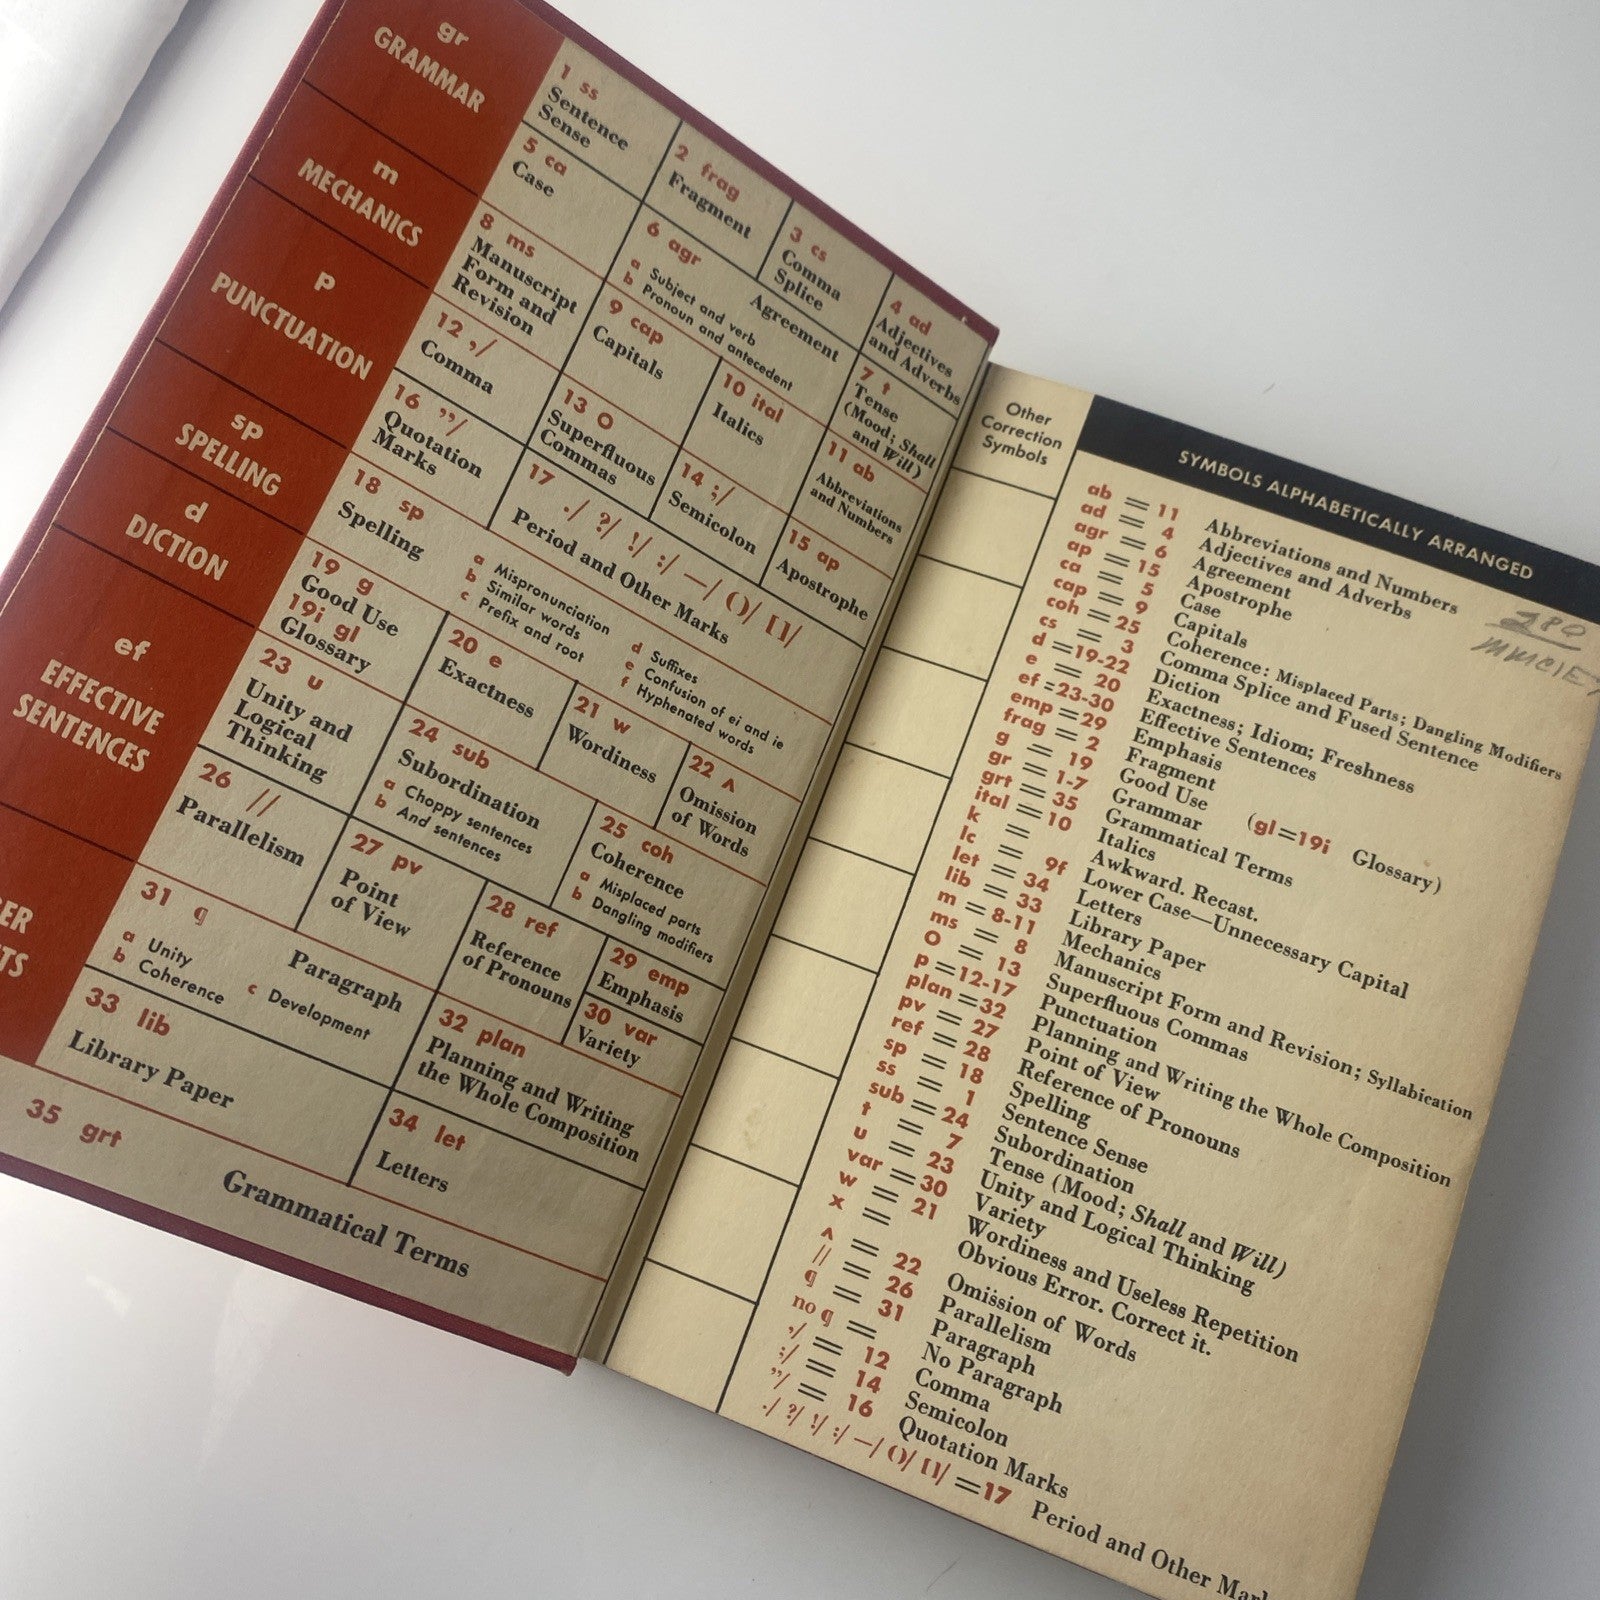 gr
GRAMMAR
1 ss
Sentence
Sense
2 frag
Fragment
3 cs
Comma
Splice
4 ad
Adjectives
and Adverbs
5 ca
Case
6 agr
a Subject and verb
b Pronoun and antecedent
Agreement
7 t
Tense
(Mood; Shall
and Will)
m
MECHANICS
8 ms
Manuscript
Form and
Revision
9 cap
Capitals
10 ital
Italics
11 ab
Abbreviations
and Numbers
p
PUNCTUATION
12 ,/
Comma
13 O
Superfluous
Commas
14 ;/
Semicolon
15 ap
Apostrophe
16 ”/
Quotation
Marks
17 ./ ?/ !/ :/ —/ ()/ []/
Period and Other Marks
sp
SPELLING
18 sp
Spelling
a Mispronunciation
b Similar words
c Prefix and root
d Suffixes
e Confusion of ei and ie
f Hyphenated words
d
DICTION
19 g
Good Use
19i gl
Glossary
20 e
Exactness
21 w
Wordiness
22 ∧
Omission
of Words
ef
EFFECTIVE
SENTENCES
23 u
Unity and
Logical
Thinking
24 sub
Subordination
a Choppy sentences
b And sentences
25 coh
Coherence
a Misplaced parts
b Dangling modifiers
26 //
Parallelism
27 pv
Point
of View
28 ref
Reference
of Pronouns
29 emp
Emphasis
30 var
Variety
31 ¶
Paragraph
a Unity
b Coherence
c Development
32 plan
Planning and Writing
the Whole Composition
33 lib
Library Paper
34 let
Letters
35 grt
Grammatical Terms
Other
Correction
Symbols
SYMBOLS ALPHABETICALLY ARRANGED
280
ab = 11 Abbreviations and Numbers
ad = 4 Adjectives and Adverbs
agr = 6 Agreement
ap = 15 Apostrophe
ca = 5 Case
cap = 9 Capitals
coh = 25 Coherence: Misplaced Parts; Dangling Modifiers
cs = 3 Comma Splice and Fused Sentence
d = 19-22 Diction
e = 20 Exactness; Idiom; Freshness
ef = 23-30 Effective Sentences
emp = 29 Emphasis
frag = 2 Fragment
g = 19 Good Use (gl = 19i Glossary)
gr = 1-7 Grammar
grt = 35 Grammatical Terms
ital = 10 Italics
k = Awkward. Recast.
lc = 9f Lower Case—Unnecessary Capital
let = 34 Letters
lib = 33 Library Paper
m = 8-11 Mechanics
ms = 8 Manuscript Form and Revision; Syllabication
O = 13 Superfluous Commas
p = 12-17 Punctuation
plan = 32 Planning and Writing the Whole Composition
pv = 27 Point of View
ref = 28 Reference of Pronouns
sp = 18 Spelling
ss = 1 Sentence Sense
sub = 24 Subordination
t = 7 Tense (Mood; Shall and Will)
u = 23 Unity and Logical Thinking
var = 30 Variety
w = 21 Wordiness and Useless Repetition
x = Obvious Error. Correct it.
∧ = 22 Omission of Words
// = 26 Parallelism
¶ = 31 Paragraph
no ¶ = No Paragraph
,/ = 12 Comma
;/ = 14 Semicolon
”/ = 16 Quotation Marks
./ ?/ !/ :/ —/ ()/ []/ = 17 Period and Other